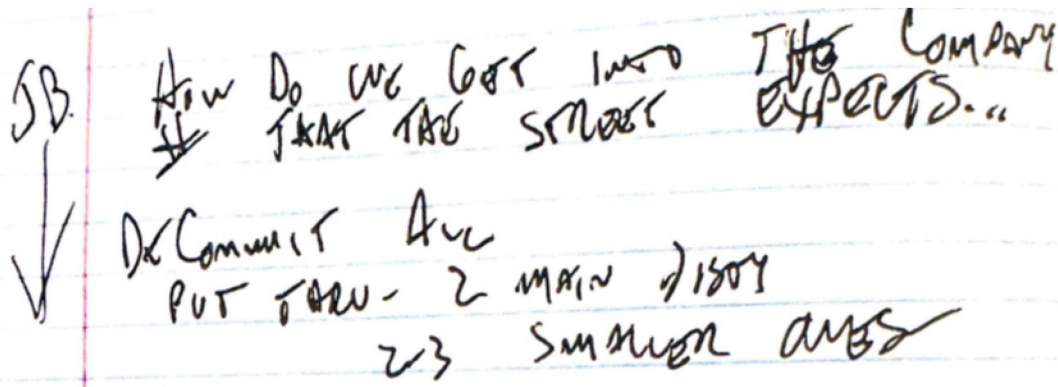 J.B. How Do WE GET INTO THE COMPANY
THAT THE STREET EXPECTS...
DECOMMIT ALL
PUT THRU - 2 MAIN DISTY
2-3 SMALLER ONES